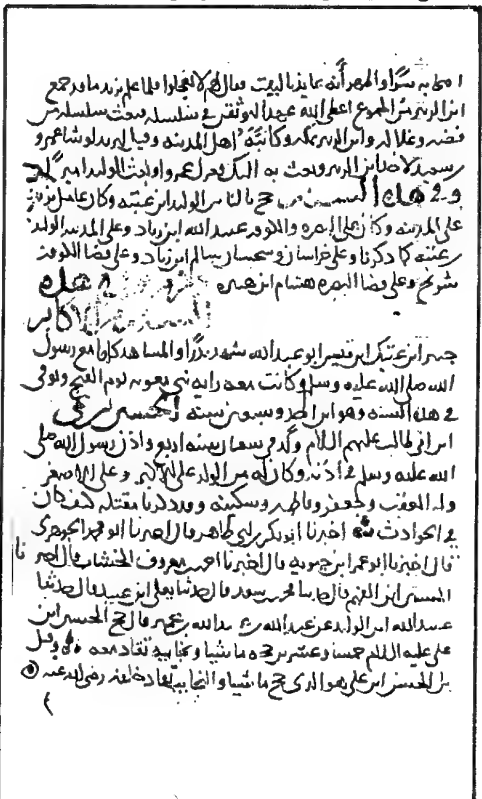 به سرا أنه عايذ بالبيت وقال لهم لا تعجلوا فلما علم يزيد ما قد جمع
ابن الزبير من الجموع اعطى الله عهدا ليوثقن في سلسله فبعث سلسله من
فضه وابن الزبير بمكه وكاتبه اهل المدينه وقيل ليزيد لو شا عمرو
بن سعيد لاخذ ابن الزبير وبعث به اليك فعزل عمرو الوليد اميرا
وفي هذه السنة حج بالناس الوليد ابن عتبه وكان عامل يزيد
على المدينه وكان على البصره والكوفه عبيد الله ابن زياد وعلى المدينه الوليد
بن عتبه كما ذكرنا وعلى خراسان وسجستان سالم ابن زياد وعلى قضا الكوفه
شريح وعلى قضا البصره هشام ابن هبيره في هذه
السنه من الاكابر
جبر ابن عتيك ابن قيس ابو عبد الله شهد بدرا والمشاهد كلها مع رسول
الله صلى الله عليه وسلم وكانت معه رايه بني معويه يوم الفتح وتوفي
في هذه السنه وهو ابن احد وسبعين سنه الحسين بن علي
ابن ابي طالب عليهم السلام ولد في شعبان سنه اربع واذن رسول الله صلى
الله عليه وسلم في اذنه وكان له من الولد علي الاكبر وعلي الاصغر
وله العقب وجعفر وفاطمه وسكينه وقد ذكرنا مقتله كيف كان
في الحوادث اخبرنا ابو بكر بن ابي طاهر قال اخبرنا ابو محمد الجوهري
قال اخبرنا ابو عمر ابن حيويه قال اخبرنا احمد بن معروف الخشاب قال اخبرنا
الحسين ابن الفهم قال حدثنا محمد بن سعد قال حدثنا يعلى ابن عبيد قال حدثنا
عبيد الله ابن الوليد عن عبد الله بن عبيد الله بن عمير قال حج الحسين ابن
علي عليه السلام خمسا وعشرين حجه ماشيا ونجايبه تقاد معه وقيل
بل الحسن ابن علي هو الذي حج ماشيا والنجايب تقاد خلفه رضي الله عنه